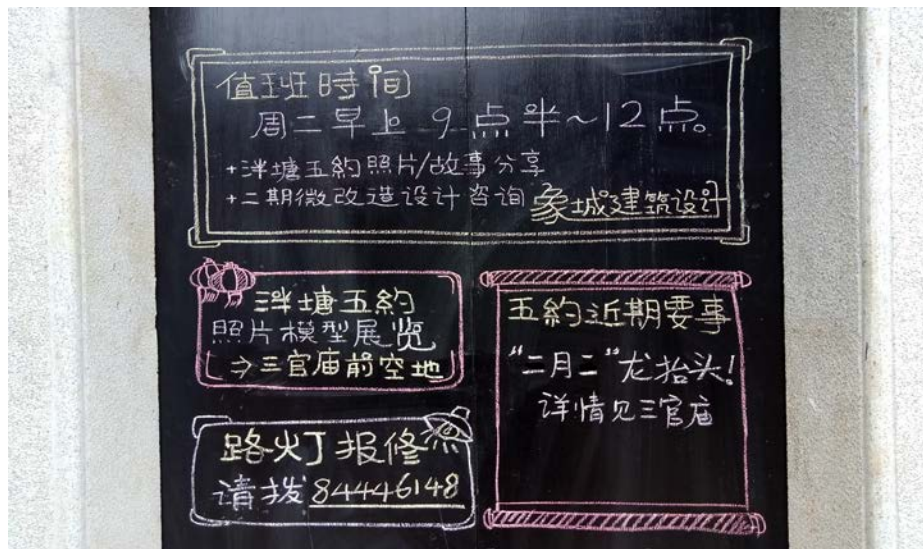 值班時间
周二早上 9点半~12点。
+泮塘五約照片/故事分享
+二期微改造设计咨询 象城建筑设计
泮塘五約
照片模型展览
→三官庙前空地
路灯报修
请拨 84446148
五約近期要事
“二月二”龙抬头!
详情见三官庙